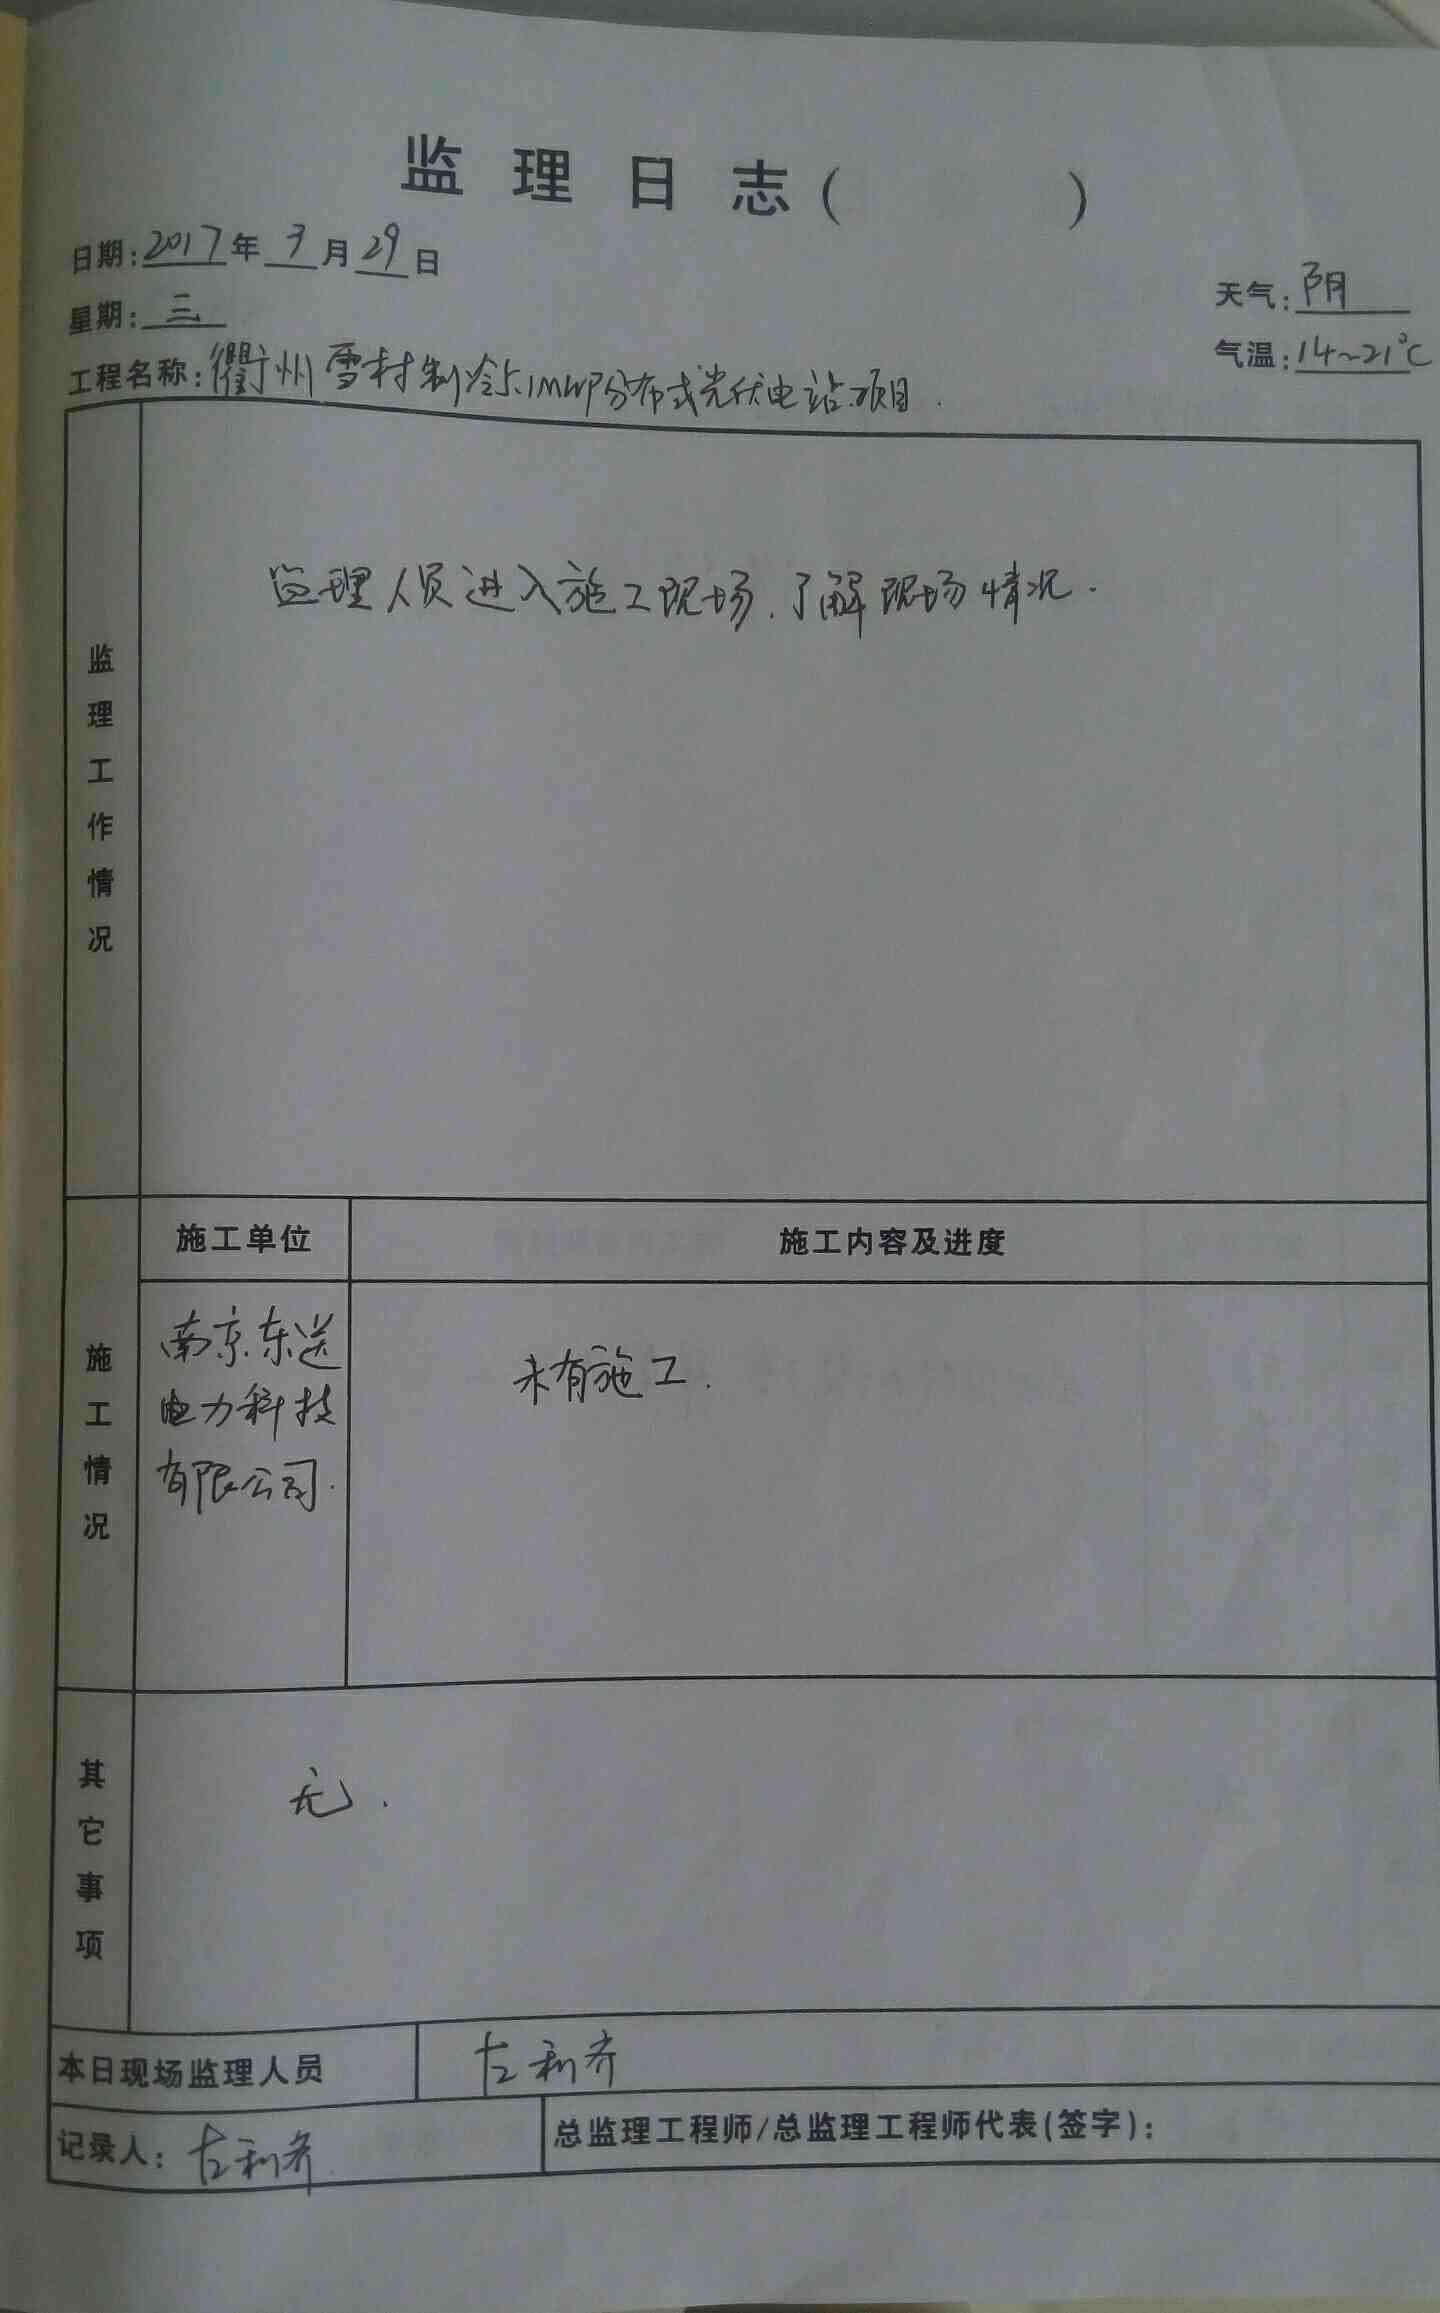 监理日志(          )
日期:2017年3月29日
天气:阴
星期:三
气温:14~21℃
工程名称:衢州雪村制冷5.1MWP分布式光伏电站项目.
监理工作情况
监理人员进入施工现场.了解现场情况.
施工情况
施工单位
施工内容及进度
南京东送
电力科技
有限公司.
未有施工.
其它事项
无.
本日现场监理人员
左利齐
记录人:左利齐.
总监理工程师/总监理工程师代表(签字):